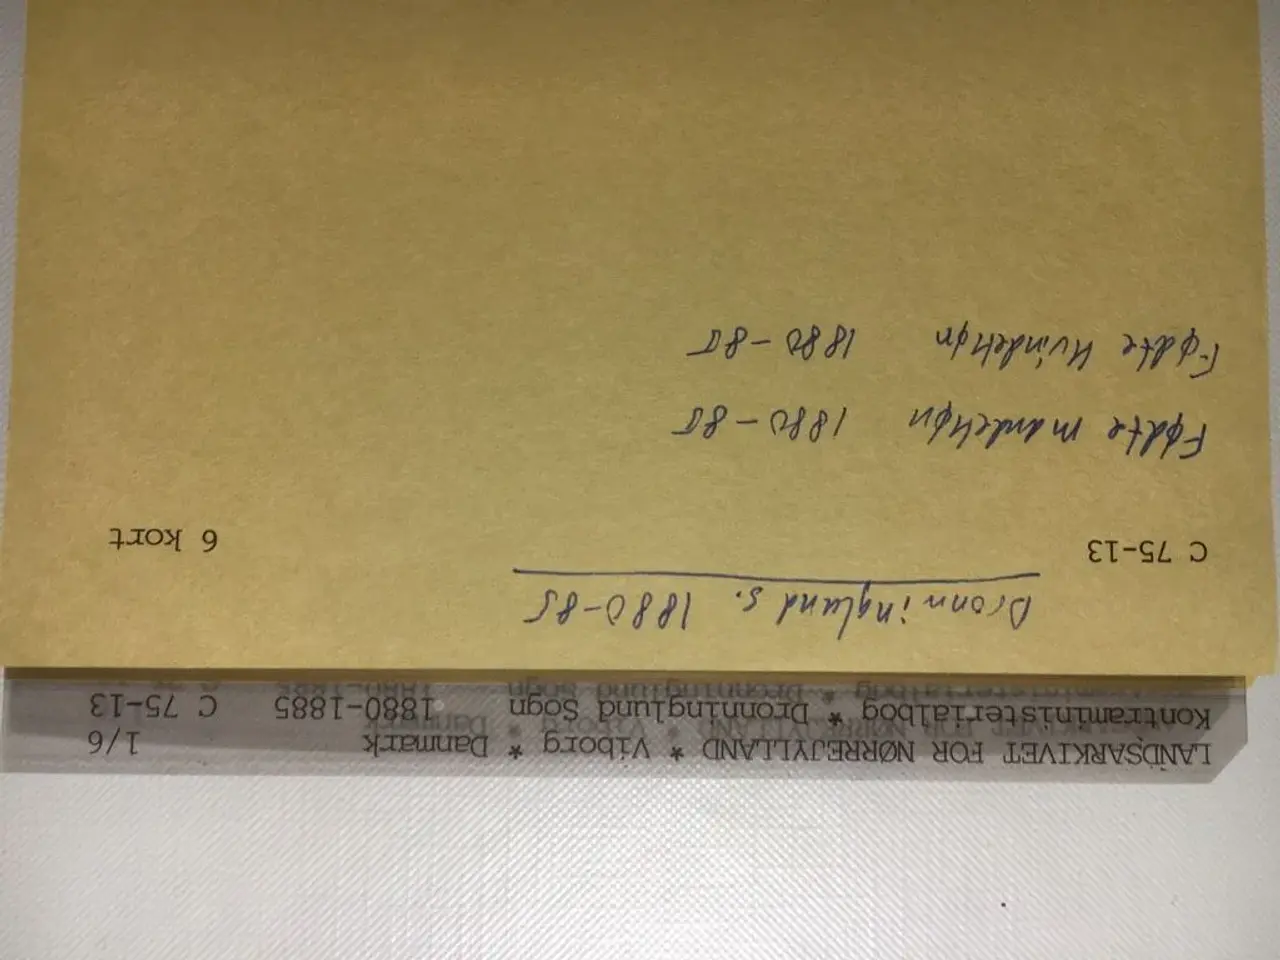 LANDSARKIVET FOR NØRREJYLLAND * Viborg * Danmark 1/6
Kontraministerialbog * Dronninglund Sogn 1880-1885 C 75-13
Dronninglund s. 1880-85
C 75-13 6 kort
Fødte mandkøn 1880-85
Fødte kvindekøn 1880-85